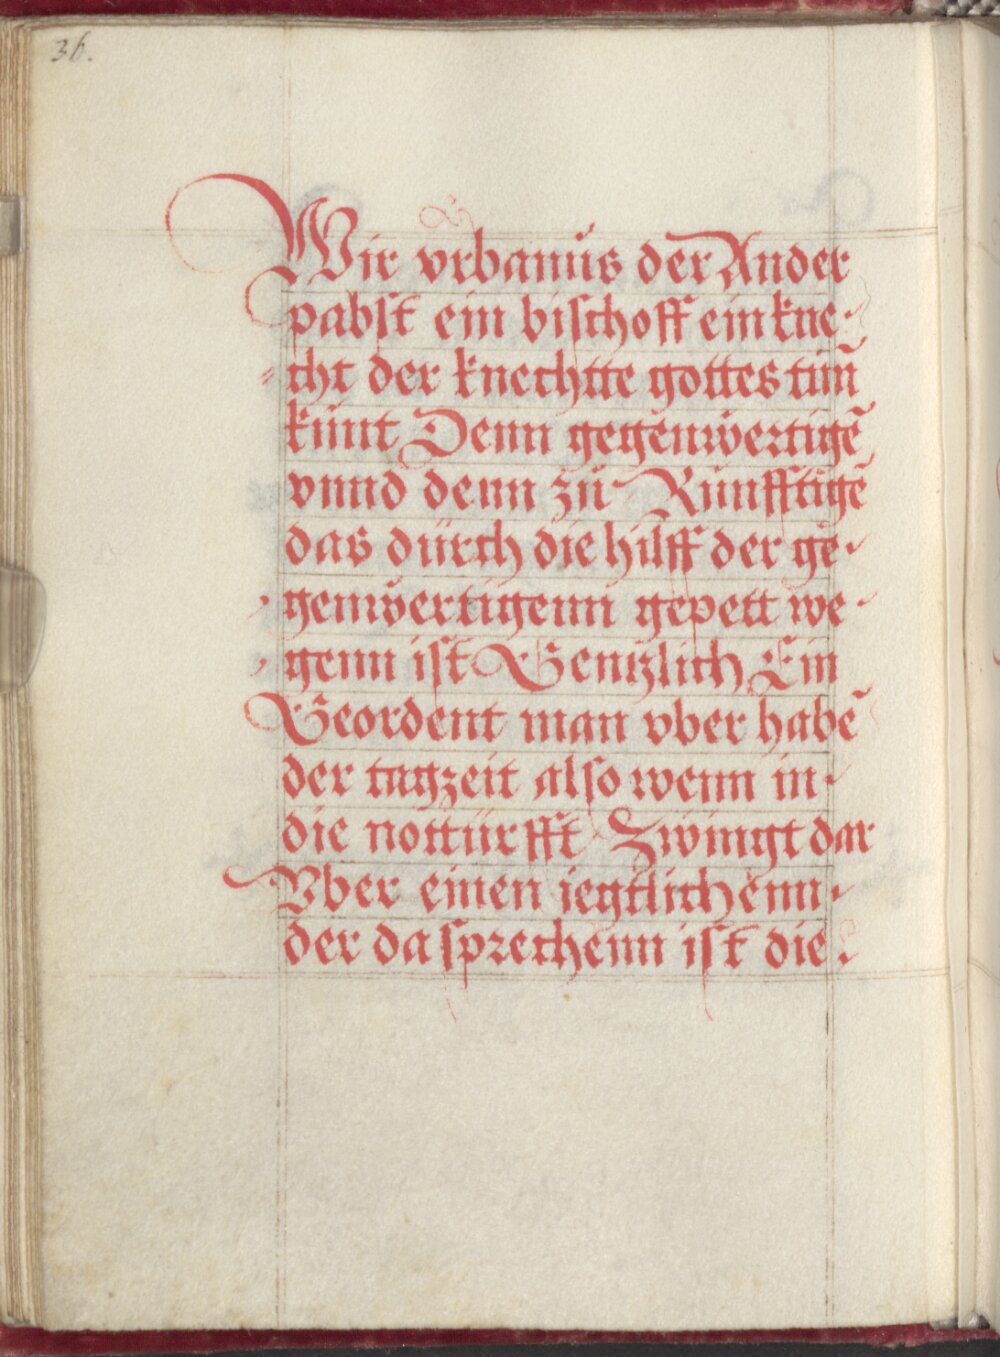 36.
Wir vrbanus der Ander
pabst ein bischoff ein kne-
-cht der knechtte gottes tun̄
kunt Denn gegenwertigē
vnnd denn zu Kunfftigē
das durch die hilff der ge-
genwertigenn gepett we-
genn ist Gentzlich Ein
Geordent man vber habē
der tagzeit also wenn in-
die notturfft Zwingt dar
Vber einen iegklichenn-
der da sprechenn ist die.